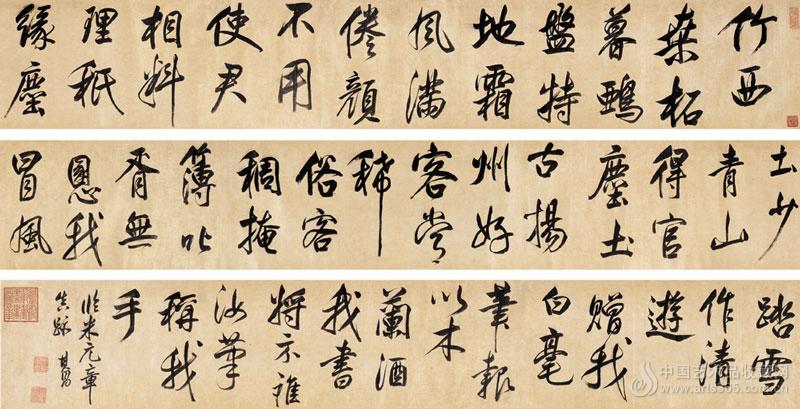 竹西
桒柘
暮鵶
盤特
地霜
風滿
倦顏
不用
使君
相料
理秖
緣塵
土少
青山
得官
塵土
古揚
州好
客常
稀
俗客
稠掩
簿叱
胥無
慁我
冒風
踏雪
作清
遊
贈我
白毫
筆報
以木
蘭酒
我書
將示誰
汝筆
稱我
手
臨米元章
真跡 其昌